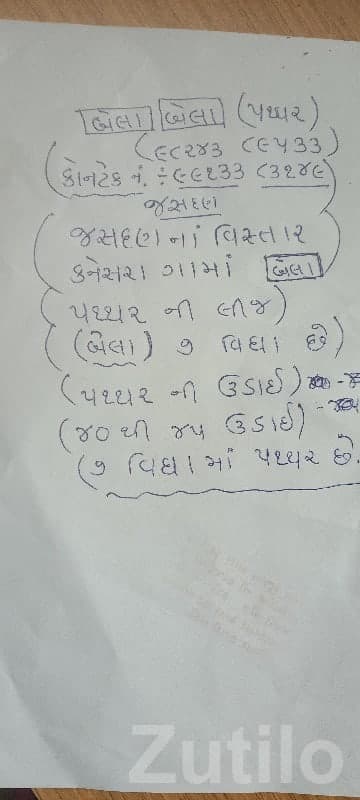 બેલા બેલા (પથ્થર)
(૯૮૨૪૩ ૮૯૫૩૩)
(કોનટેક નં. ÷ ૯૯૧૩૩ ૮૩૨૪૯)
જસદણ
(જસદણનાં વિસ્તાર
કનેસરા ગામમાં બેલા
પથ્થર ની લીજ)
(બેલા) ૭ વિઘા છે)
(પથ્થર ની ઉંડાઈ)
(૪૦ થી ૪૫ ઉંડાઈ)
(૭ વિઘામાં પથ્થર છે.
Zutilo